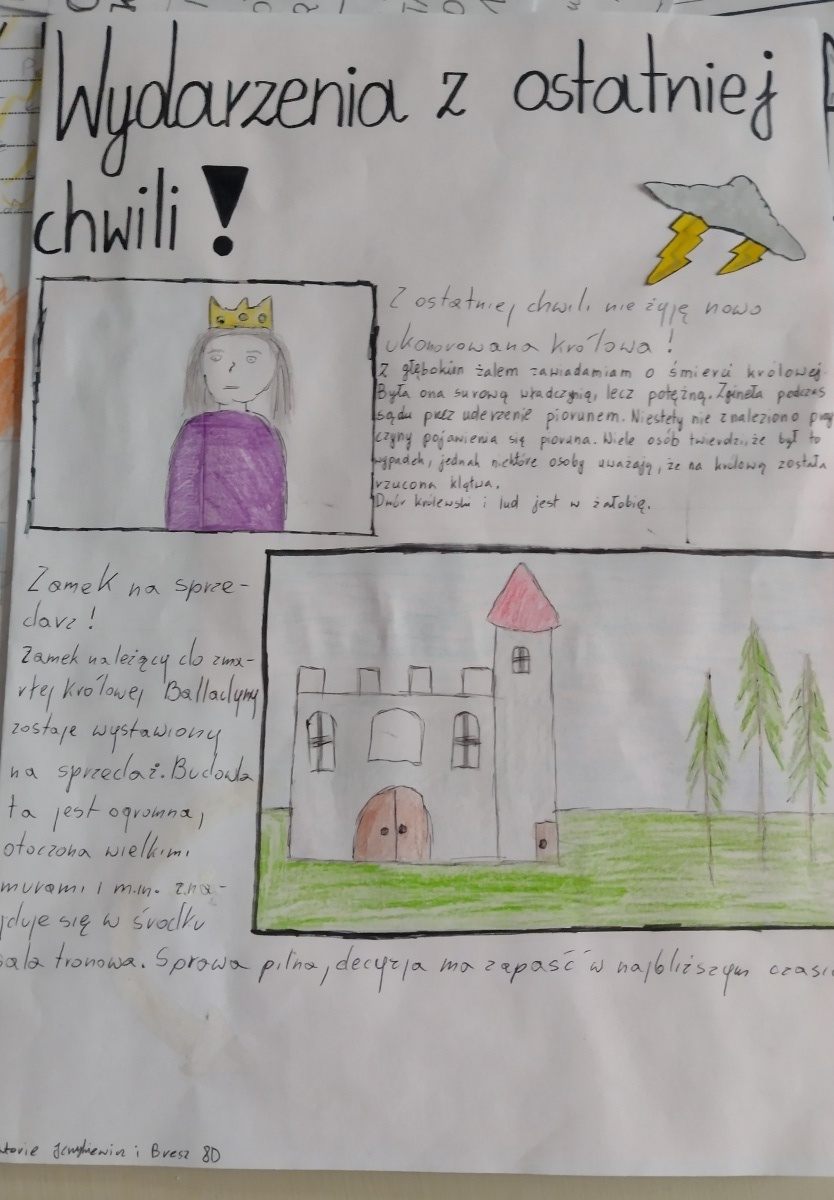 Wydarzenia z ostatniej
chwili!
Z ostatniej chwili nie żyję nowo
ukonorowana królowa!
Z głębokim żalem zawiadamiam o śmierci królowej.
Była ona surową władczynią, lecz potężną. Zgineła podczas
sądu przez uderzenie piorunem. Niestety nie znaleziono przy
czyny pojawienia się pioruna. Wiele osób twierdzi, że był to
wypadek, jednak niektóre osoby uważają, że na królową została
rzucona klątwa.
Dwór królewski i lud jest w żałobię.
Zamek na sprze-
darz!
Zamek należący do zma-
rłej królowej Balladyny
zostaje wystawiony
na sprzedaż. Budowla
ta jest ogromna,
otoczona wielkimi
murami i m.in. zna-
jduje się w środku
sala tronowa. Sprawa pilna, decyzja ma zapaść w najbliższym czasie
i Bresz 8D